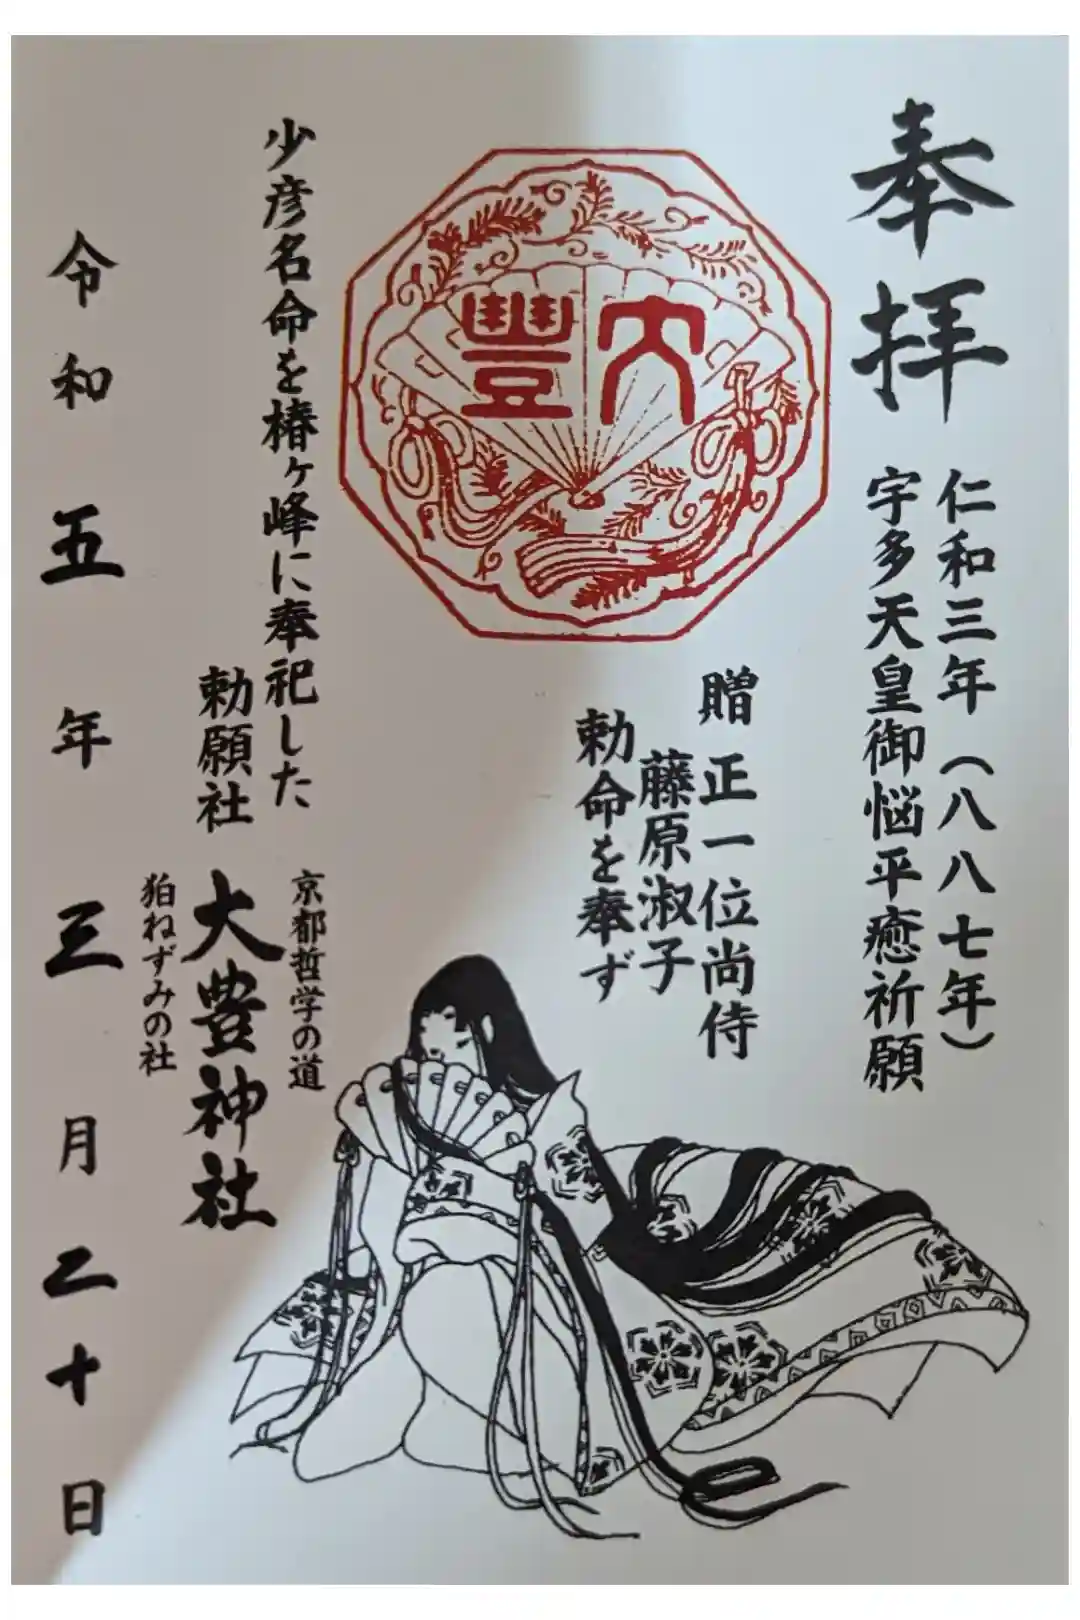 奉拝
仁和三年（八八七年）
宇多天皇御悩平癒祈願
贈 正一位尚侍
藤原淑子
勅命を奉ず
大豐
少彦名命を椿ヶ峰に奉祀した
勅願社 大豊神社
京都哲学の道
狛ねずみの社
令和五年三月二十日